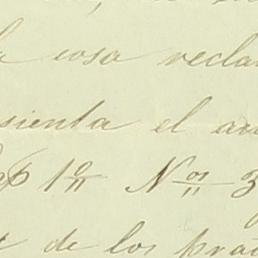 la cosa recla
sienta el ar
1º Nos 3
de los pra